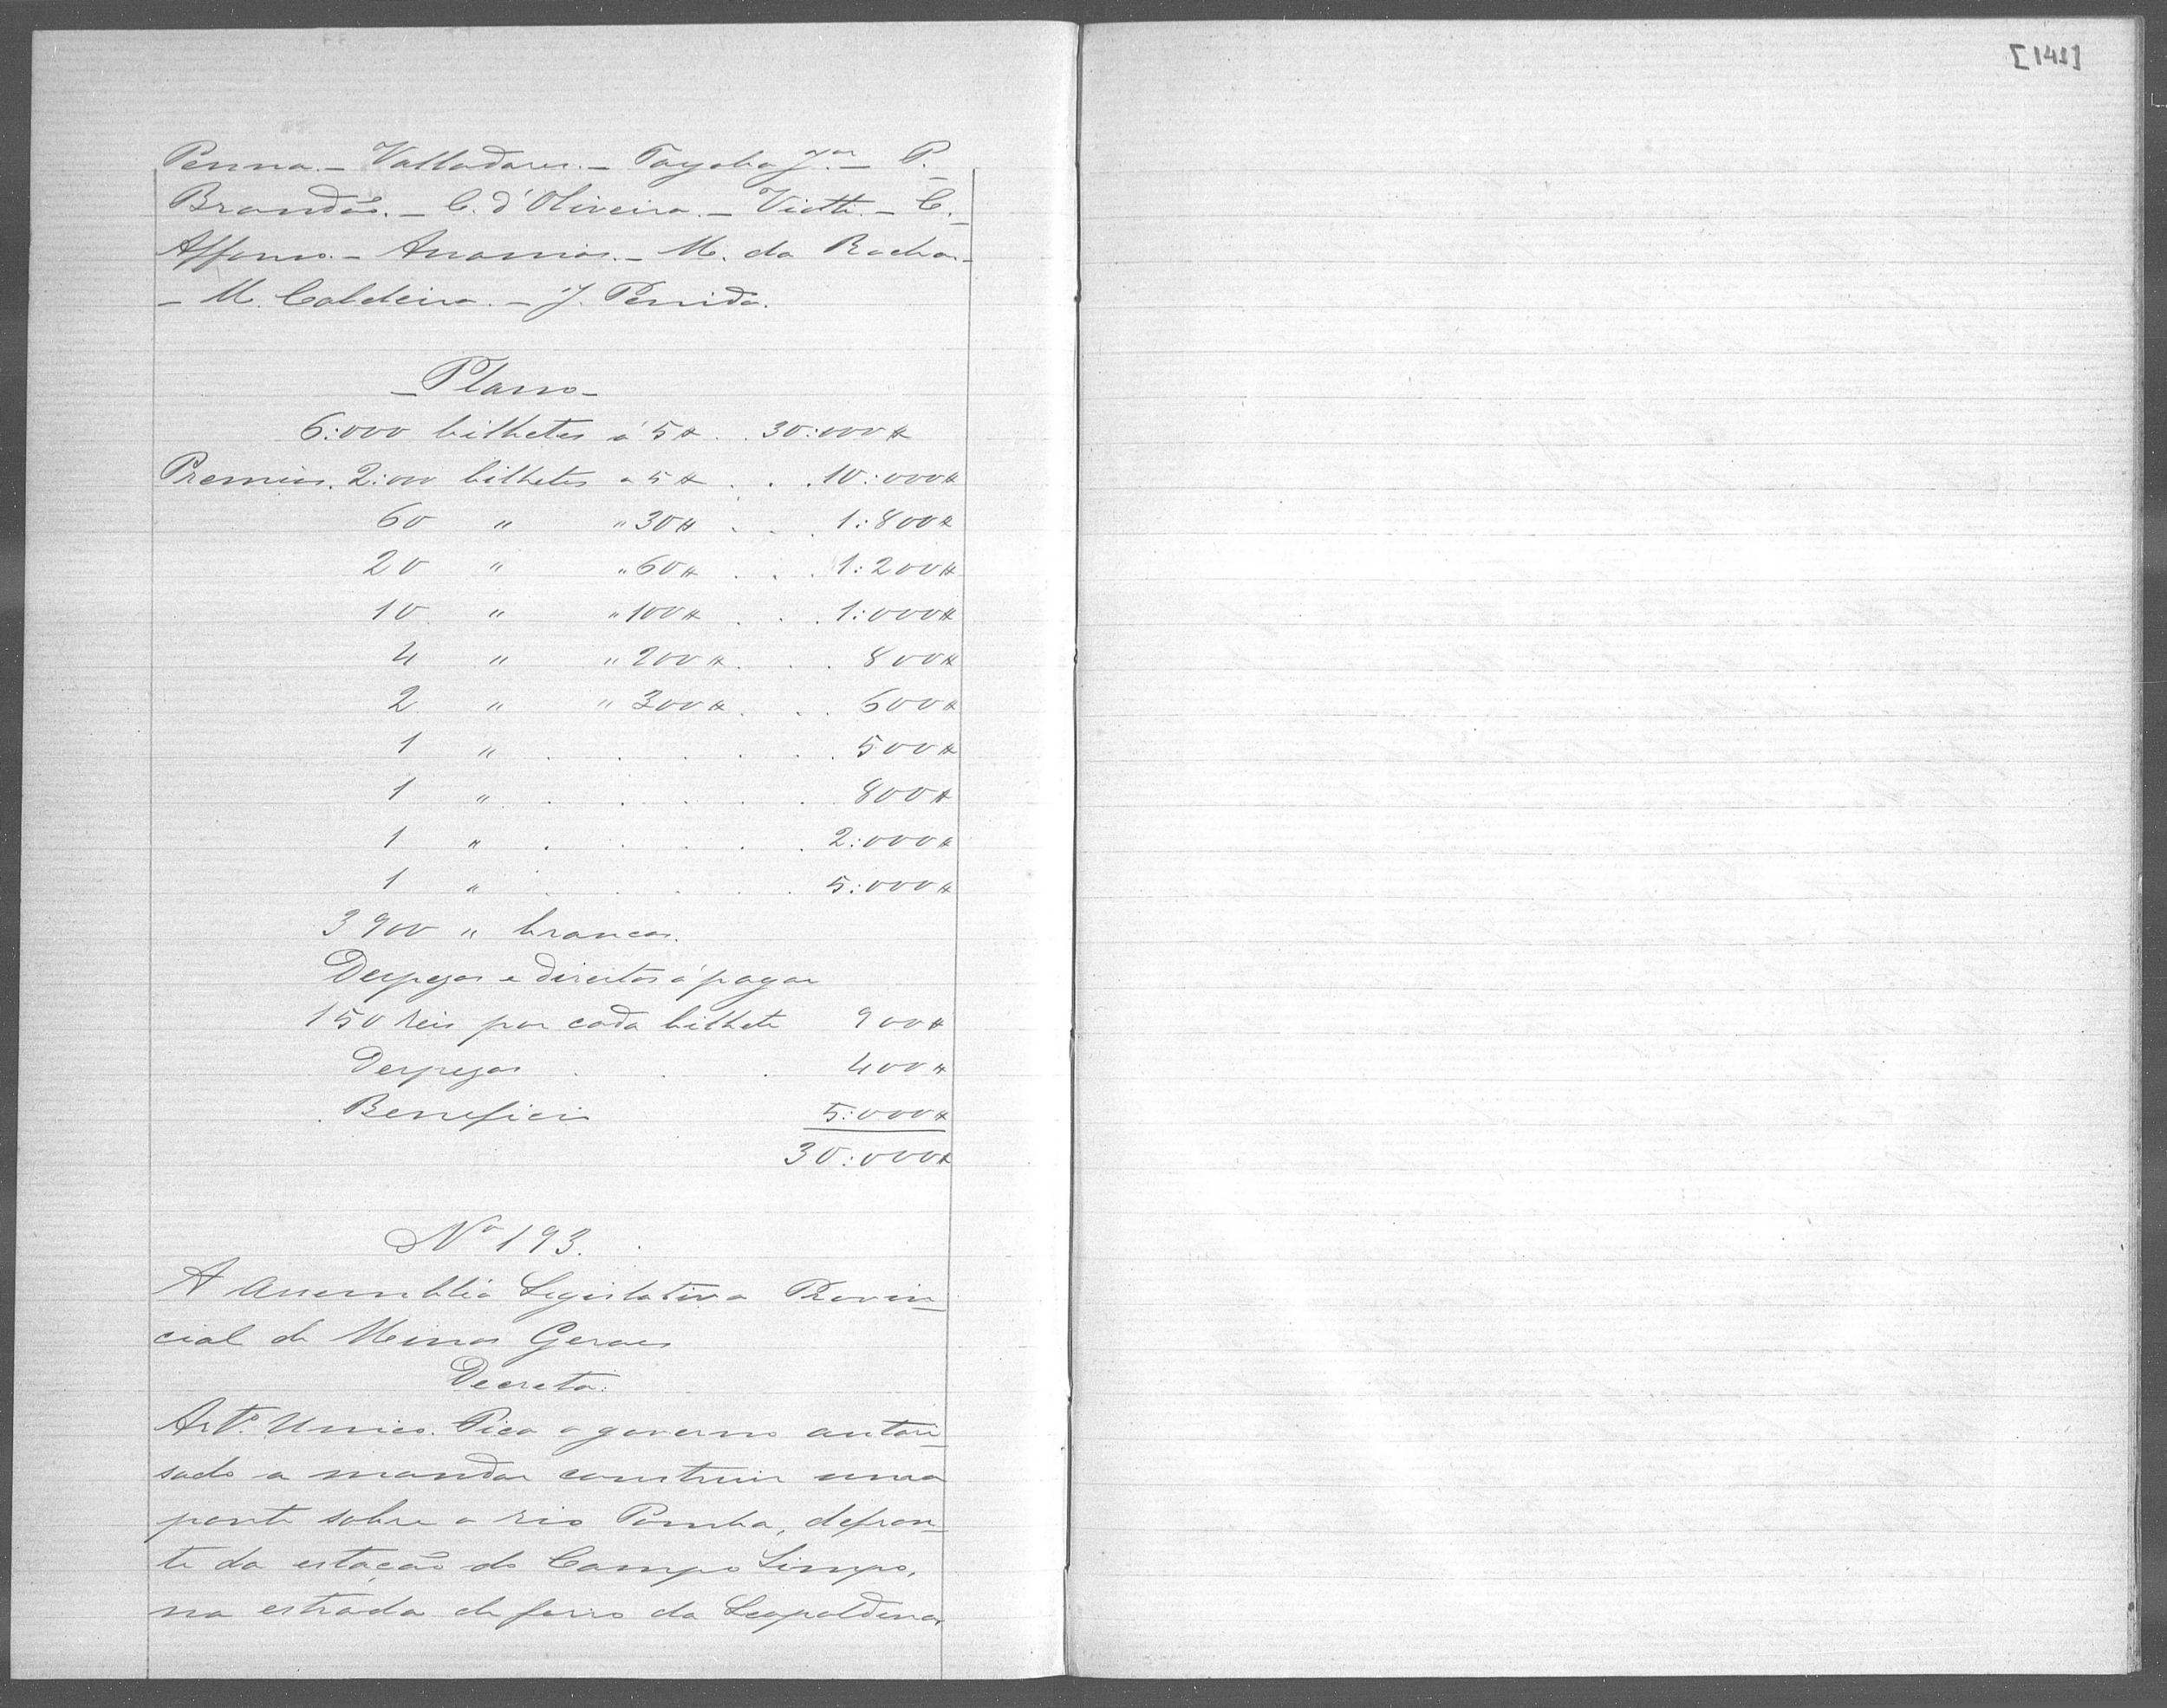 [141]
Penna. — Valladares. — Tayoba Jor — P.
Brandão. — C. d'Oliveira. — Viotti. — C.
Affonso. — Ananias. — M. da Rocha. —
— M. Caldeira. — J. Penido.
— Plano —
6:000 bilhetes á 5$ . . 30:000$
Premios. 2:000 bilhetes a 5$ . . . 10:000$
60 " " 30$ . . . 1:800$
20 " " 60$ . . . 1:200$
10 " " 100$ . . . 1:000$
4 " " 200$ . . . 800$
2 " " 300$ . . . 600$
1 " . . . . . 500$
1 " . . . . . 800$
1 " . . . . . 2:000$
1 " . . . . . 5:000$
3900 " brancos.
Despezas e direitos á pagar
150 reis por cada bilhete 900$
Despezas . . . 400$
Beneficio 5:000$
30:000$
Nº 193.
A Assembléa Legislativa Provin-
cial de Minas Geraes
Decreta:
Artº. Unico. Fica o governo autori-
sado a mandar construir uma
ponte sobre o rio Pomba, defron-
te da estação do Campo Limpo,
na estrada de ferro da Leopoldina,